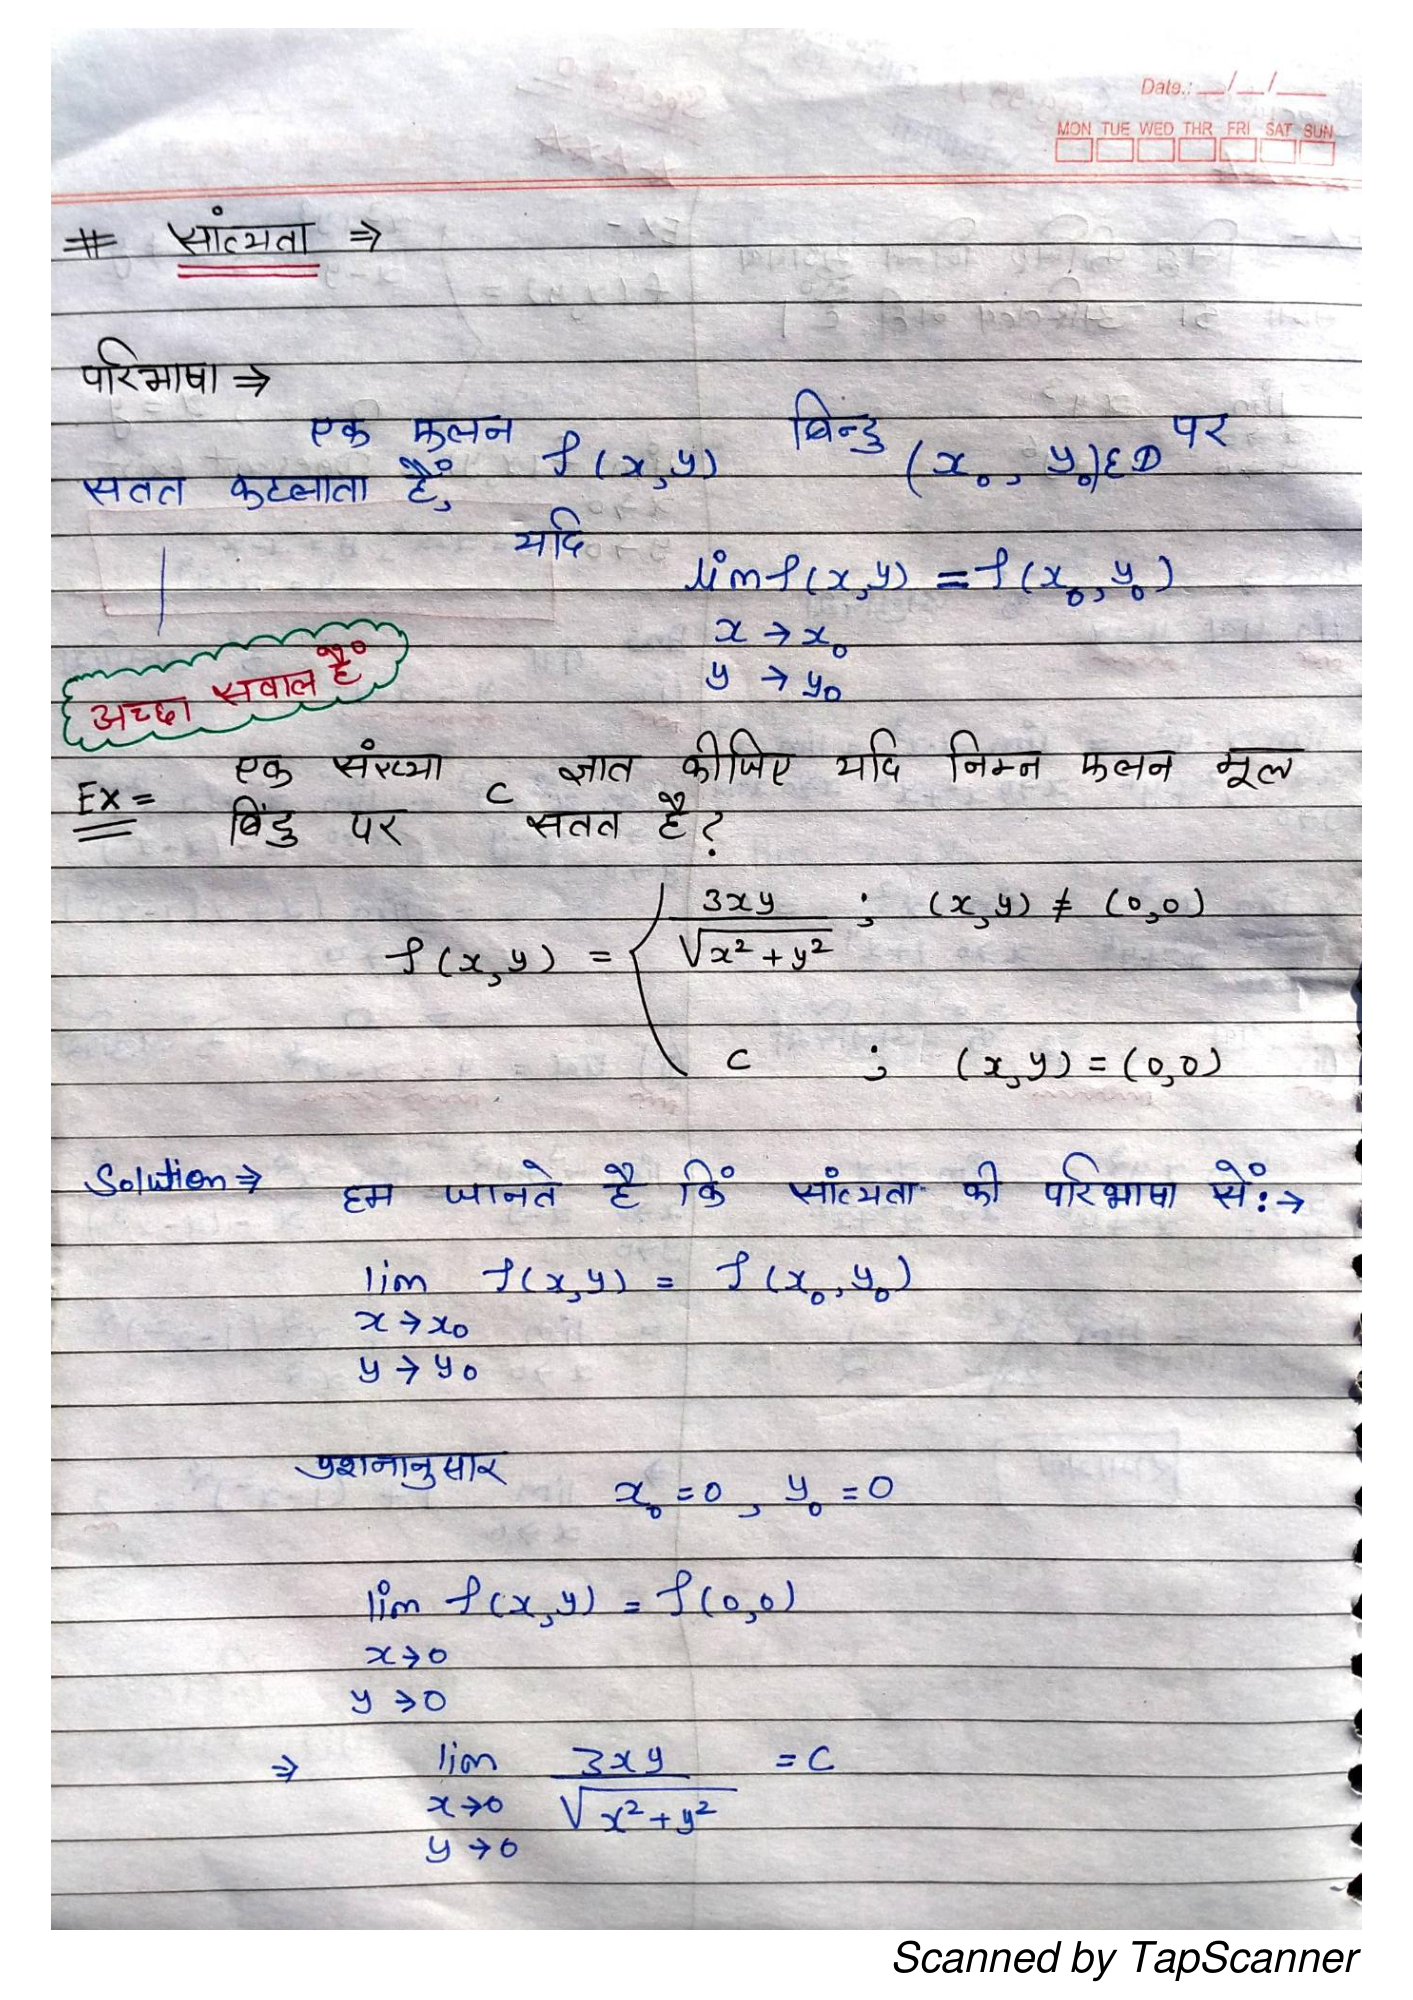 Date.: __/__/__
MON TUE WED THR FRI SAT SUN
# सांत्यता ⇒
परिभाषा ⇒
एक फलन f(x,y) बिन्दु (x₀, y₀)∈D पर
सतत कहलाता हैं,
यदि
lim f(x,y) = f(x₀, y₀)
x → x₀
y → y₀
अच्छा सवाल है
Ex = एक संख्या c ज्ञात कीजिए यदि निम्न फलन मूल
बिंदु पर सतत है?
f(x,y) = { 3xy / √x²+y² ; (x,y) ≠ (0,0)
c ; (x,y) = (0,0)
Solution ⇒ हम जानते है किं सांत्यता की परिभाषा सें :→
lim f(x,y) = f(x₀, y₀)
x → x₀
y → y₀
प्रशनानुसार x₀ = 0, y₀ = 0
lim f(x,y) = f(0,0)
x → 0
y → 0
⇒ lim 3xy / √x²+y² = C
x → 0
y → 0
Scanned by TapScanner